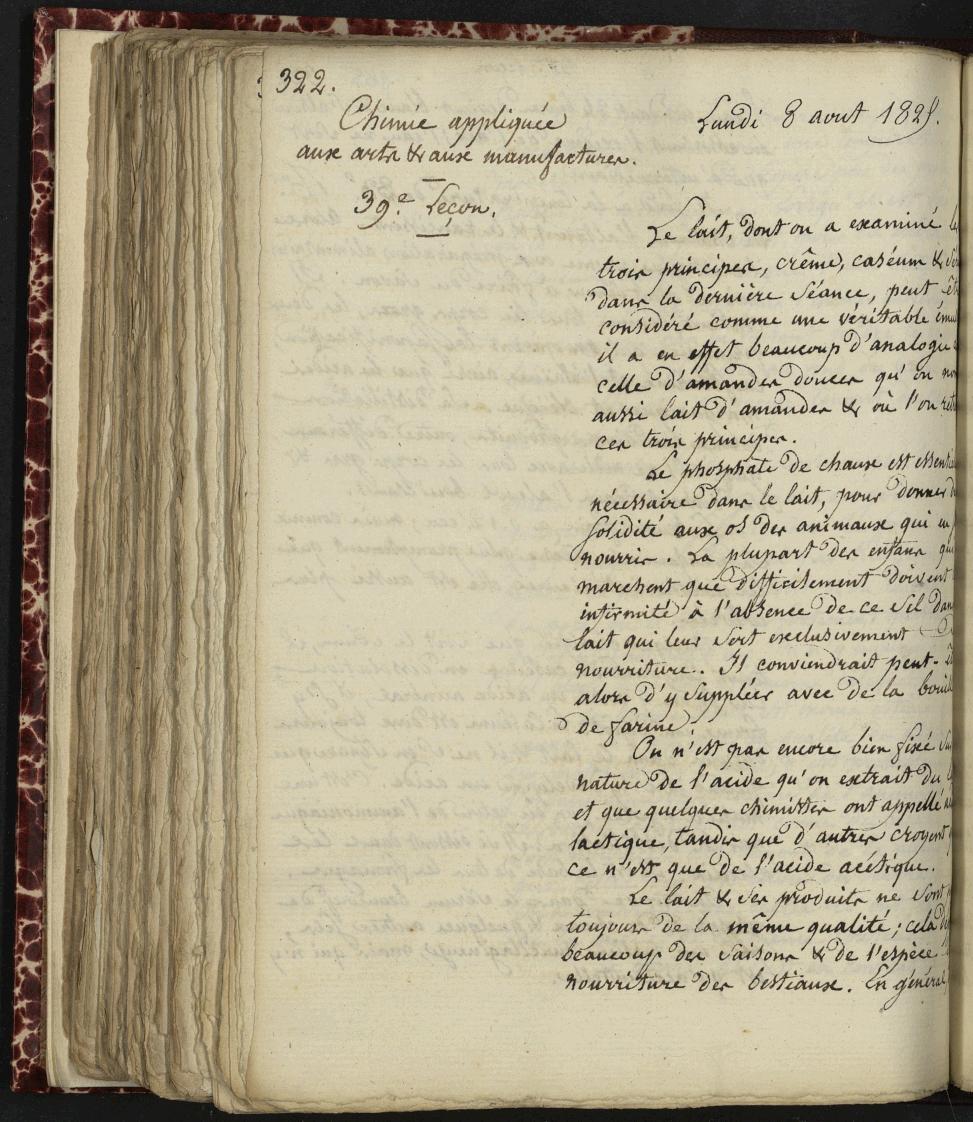 322.
Chimie appliquée
aux arts & aux manufactures.
Lundi 8 aout 1825.
39.e Leçon.
Le lait, dont on a examiné
trois principes, crême, caséum &
dans la dernière séance, peut
considéré comme une véritable
il a en effet beaucoup d'analogie
celle d'amandes douces qu'on
aussi lait d'amandes & où l'on
ces trois principes.
Le phosphate de chaux est
nécessaire dans le lait, pour donner
solidité aux os des animaux qui
nourris. La plupart des enfans
marchent que difficilement doivent
infirmité à l'absence de ce sel
lait qui leur sert exclusivement
nourriture. Il conviendrait peut-
alors d'y suppléer avec de la
de farine.
On n'est pas encore bien fixé
nature de l'acide qu'on extrait du
et que quelques chimistes ont appellé
lactique, tandis que d'autres croyent
ce n'est que de l'acide acétique.
Le lait & ses produits ne sont
toujours de la même qualité ; cela
beaucoup des saisons & de l'espèce
nourriture des bestiaux. En général